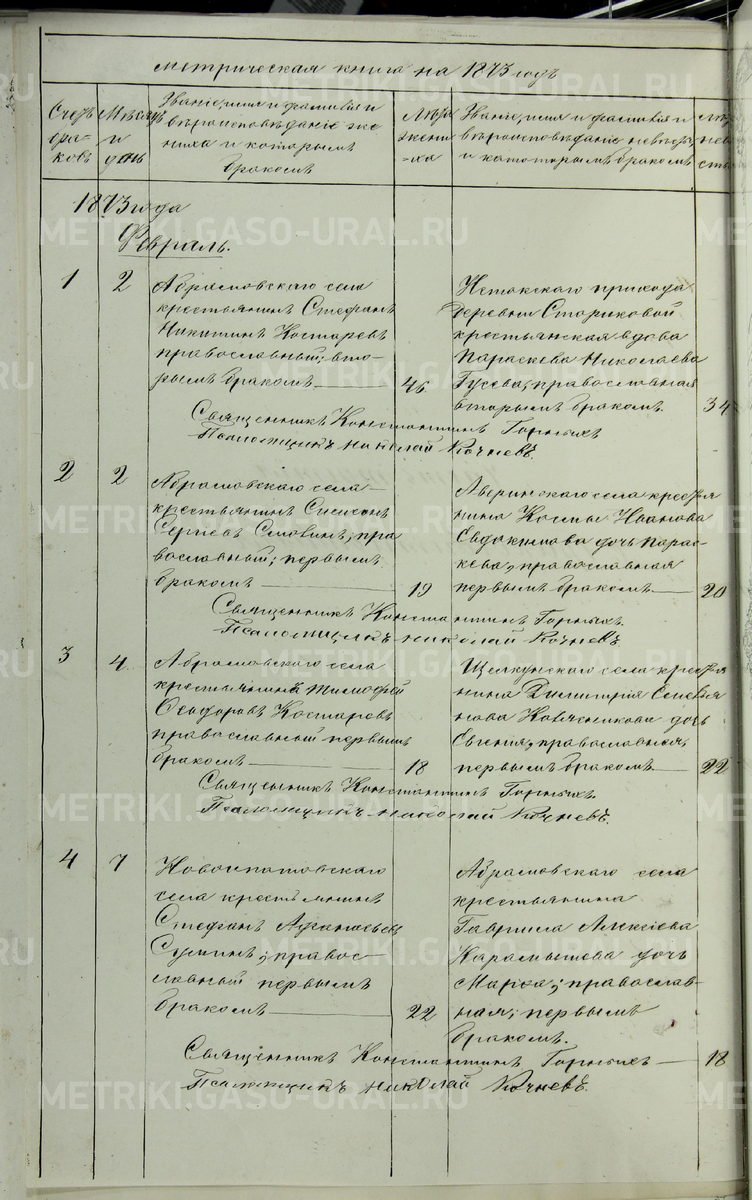 метрическая книга на 1873 годъ
Счетъ браковъ
Мѣсяцъ и день
Званіе, имя и фамилія и
вѣроисповѣданіе же-
ниха и которымъ
бракомъ
Лѣта
жени
-ха
Званіе, имя и фамилія и
вѣроисповѣданіе невѣсты,
и каторымъ бракомъ
1873 года
Февраль.
1 2
Абрамовскаго села
крестьянинъ Стефанъ
Никитинъ Костаревъ
православный; вто-
рымъ бракомъ 46
Истокскаго прихода
деревни Стариковой
крестьянская вдова
Параскева Николаева
Гусева, православная
вторымъ бракомъ. 34
Священникъ Константинъ Горныхъ
Псаломщикъ Николай Кочневъ.
2 2
Абрамовскаго села
крестьянинъ Симеонъ
Сергіевъ пра
вославный; первымъ
бракомъ 19
Аверинскаго села кресть
янина Космы Иванова
Евдокимова дочь Парас-
кева, православная
первымъ бракомъ 20
Священникъ Константинъ Горныхъ.
Псаломщикъ Николай Кочневъ.
3 4
Абрамовскаго села
крестьянинъ Тимофей
Феодоровъ Костаревъ
православный первымъ
бракомъ 18
Щелкунскаго села кресть
янина Димитрія
дочь
Евгенія, православная,
первымъ бракомъ 22
Священникъ Константинъ Горныхъ.
Псаломщикъ Николай Кочневъ.
4 7
Новоипатовскаго
села крестьянинъ
Стефанъ Афанасьевъ
правос-
лавный первымъ
бракомъ 22
Абрамовскаго села
крестьянина
Гавриила Алексіева
Карамышева дочь
Марѳа; православ-
ная; первымъ
бракомъ.
Священникъ Константинъ Горныхъ 18
Псаломщикъ Николай Кочневъ.
METRIKI.GASO-URAL.RU